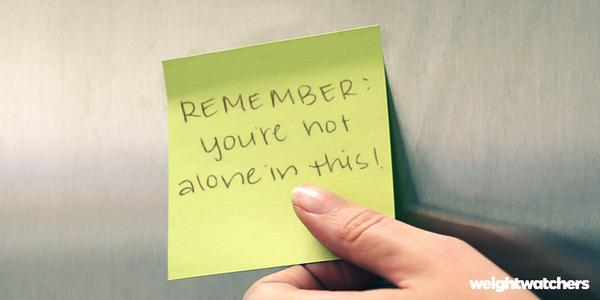 REMEMBER:
you're not
alone in this!
weightwatchers